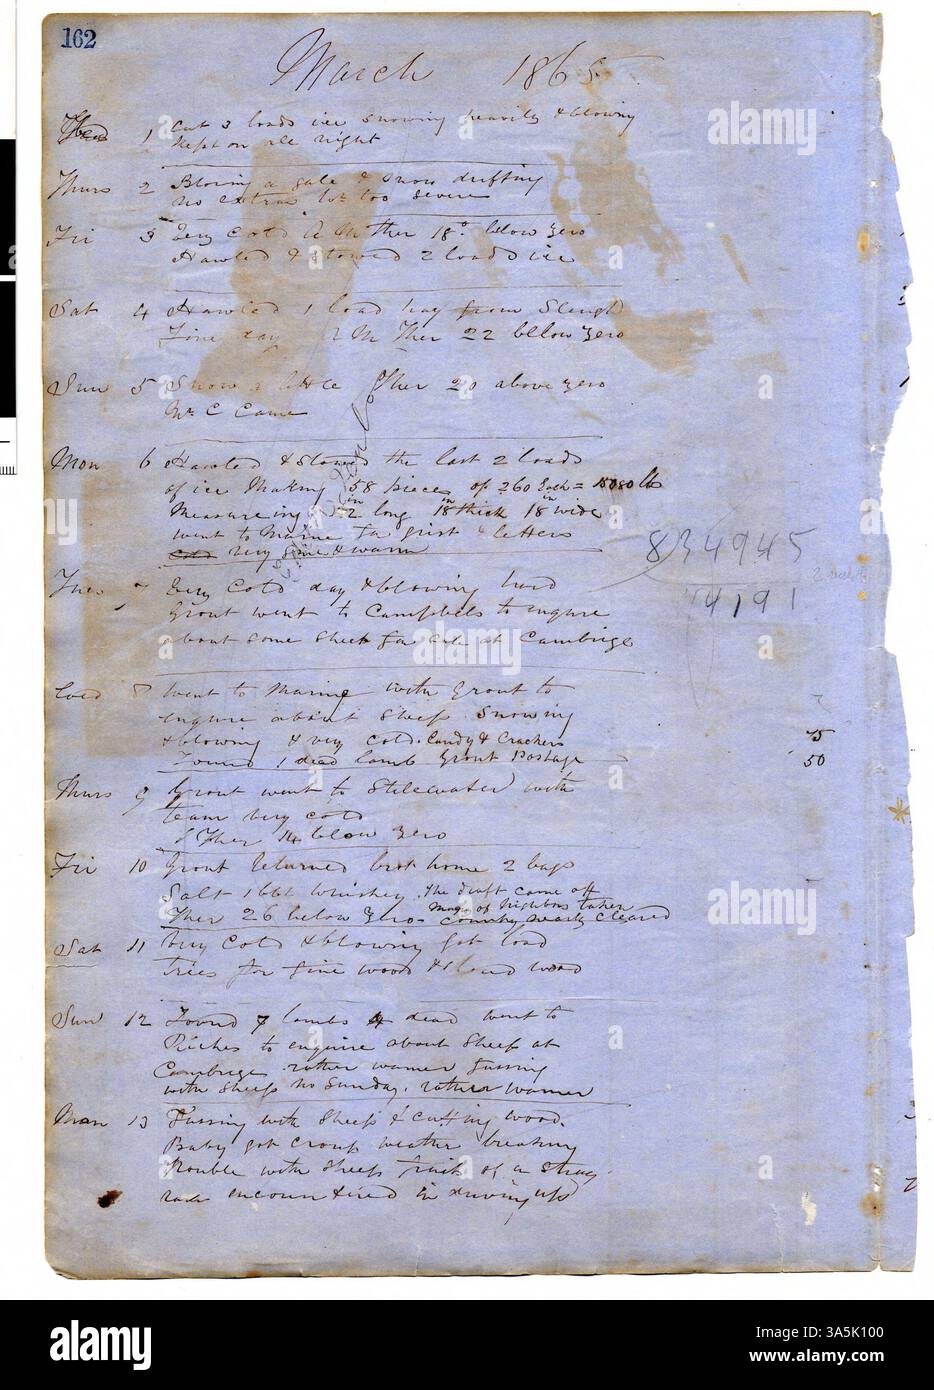 162
March 1865
Wed 1 Cut 3 loads ice snowing heavily & blowing
Kept on all night
Thurs 2 Blowing a gale & snow drifting
no extras too severe
Fri 3 Very Cold A M Ther 18° below zero
Hawled & stowed 2 loads ice
Sat 4 Hawled 1 load hay from Slough
Fine day A M Ther 22 below zero
Sun 5 Snow a little Ther 20 above zero
Mr C Came
Mon 6 Hawled & Stowed the last 2 loads
of ice Making 58 pieces of 260 Each = 15080 lb
Measureing in 2 long 18 in thick 18 in wide
went to Marine for grist & letters
very fine & warm
Tues 7 Very Cold day & blowing hard
Grout went to Campbels to enqure
about some sheep for sale at Cambrige
834945
4191
Wed 8 Went to Marine with Grout to
enqure about Sheep Snowing
& blowing & very cold. Candy & Crackers 15
Found 1 dead lamb Grout Postage 50
Thurs 9 Grout went to Stillwater with
team very cold
Ther 14 below zero
Fri 10 Grout Returned brot home 2 bags
Salt 1 bbl Whiskey. The draft came off
Ther 26 below zero. Many of Neighbors taken
Country nearly Cleared
Sat 11 Very Cold & blowing got load
trees for fine wood & wood
Sun 12 Found 7 lambs 4 dead went to
Riches to enquire about Sheep at
Cambrige. rather warmer fussing
with sheep no Sunday. rather warmer
Mon 13 Fussing with Sheep & cutting wood.
Baby got Croup weather breaking
trouble with Sheep fruit of a stray
ram encountered in driving up
alamy
Image ID: 3A5K100
www.alamy.com